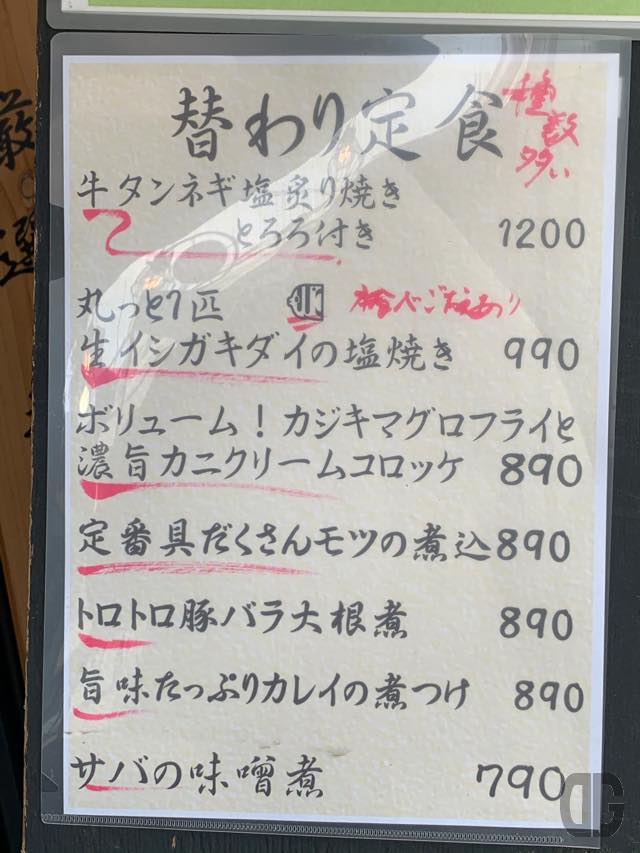 替わり定食
種
数
多い
牛タンネギ塩炙り焼き
とろろ付き 1200
丸っと1匹 食べごたえあり
生イシガキダイの塩焼き 990
ボリューム!カジキマグロフライと
濃旨カニクリームコロッケ 890
定番具だくさんモツの煮込 890
トロトロ豚バラ大根煮 890
旨味たっぷりカレイの煮つけ 890
サバの味噌煮 790
厳
選